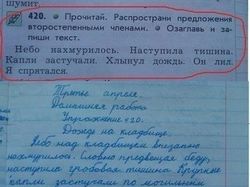 шумит.
420. • Прочитай. Распространи предложения
второстепенными членами. • Озаглавь и за-
пиши текст.
Небо нахмурилось. Наступила тишина.
Капли застучали. Хлынул дождь. Он лил.
Я спрятался.
Третье апреля.
Домашняя работа
Упражнение 420.
Дождь на кладбище.
Небо над кладбищем внезапно
нахмурилось. Словно предвещая беду,
наступила гробовая тишина. Крупные
капли застучали по могильным